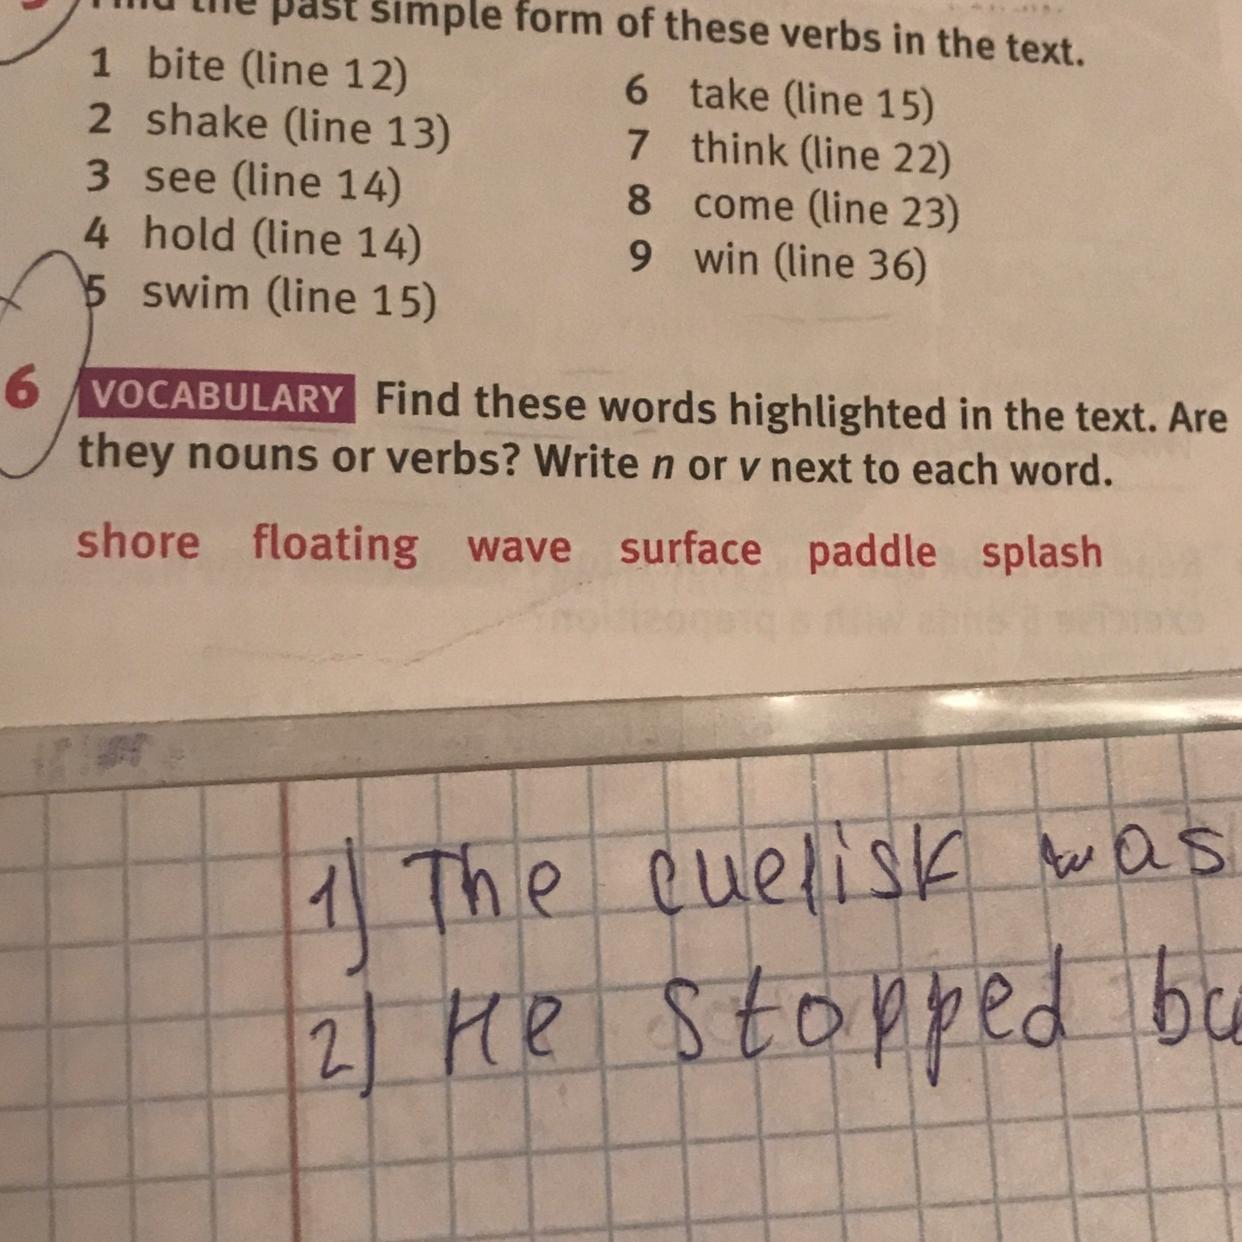 the past simple form of these verbs in the text.
1 bite (line 12)
2 shake (line 13)
3 see (line 14)
4 hold (line 14)
5 swim (line 15)
6 take (line 15)
7 think (line 22)
8 come (line 23)
9 win (line 36)
6 VOCABULARY Find these words highlighted in the text. Are
they nouns or verbs? Write n or v next to each word.
shore floating wave surface paddle splash
1) The cuelisk was
2) He stopped